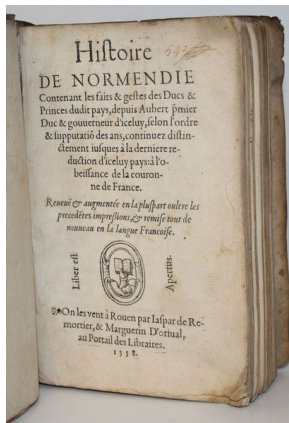 Histoire
DE NORMENDIE
Contenant les faits & gestes des Ducs &
Princes dudit pays, depuis Aubert p̃mier
Duc & gouuerneur d'iceluy, selon l'ordre
& supputatiõ des ans, continuez distin-
ctement iusques à la derniere re-
duction d'iceluy pays: à l'o-
beissance de la couron-
ne de France.
Reueuë & augmentée en la pluspart oultre les
precedẽtes impressions, & remise tout de
nouueau en la langue Francoise.
Liber est
Apertus.
On les vent à Rouen par Iaspar de Re-
mortier, & Marguerin D'oriual,
au Portail des Libraires.
1558.